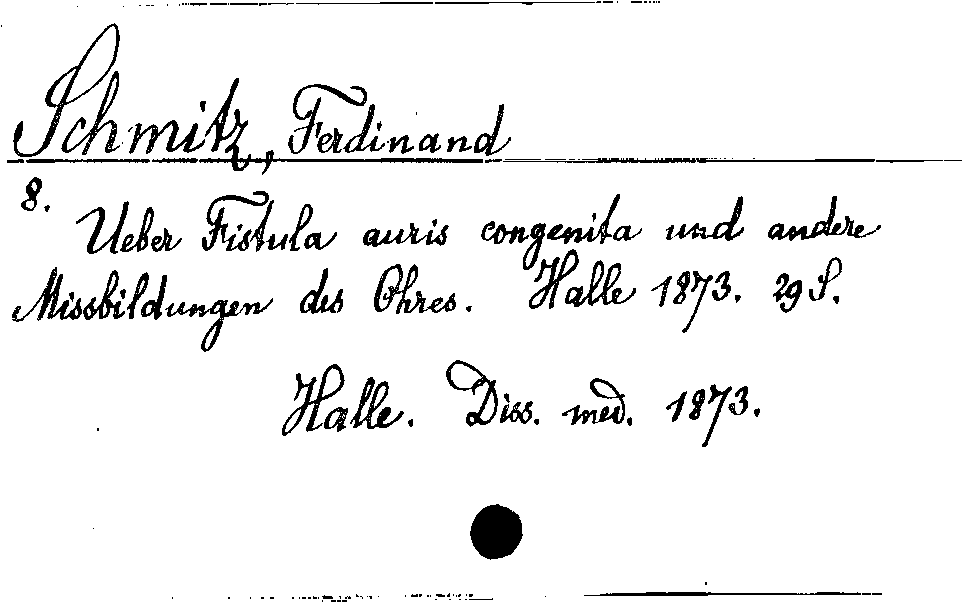 Schmitz, Ferdinand
8.
Ueber Fistula auris congenita und andere
Missbildungen des Ohres. Halle 1873. 29 S.
Halle. Diss. med. 1873.